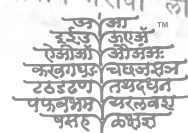 अ आ ™
इ ई उ ऊ ए ॲ
ऐ ओ ऑ औ अं अः
क ख ग घ ङ च छ ज झ ञ
ट ठ ड ढ ण त थ द ध न
प फ ब भ म य र ल व श
ष स ह ळ क्ष ज्ञ